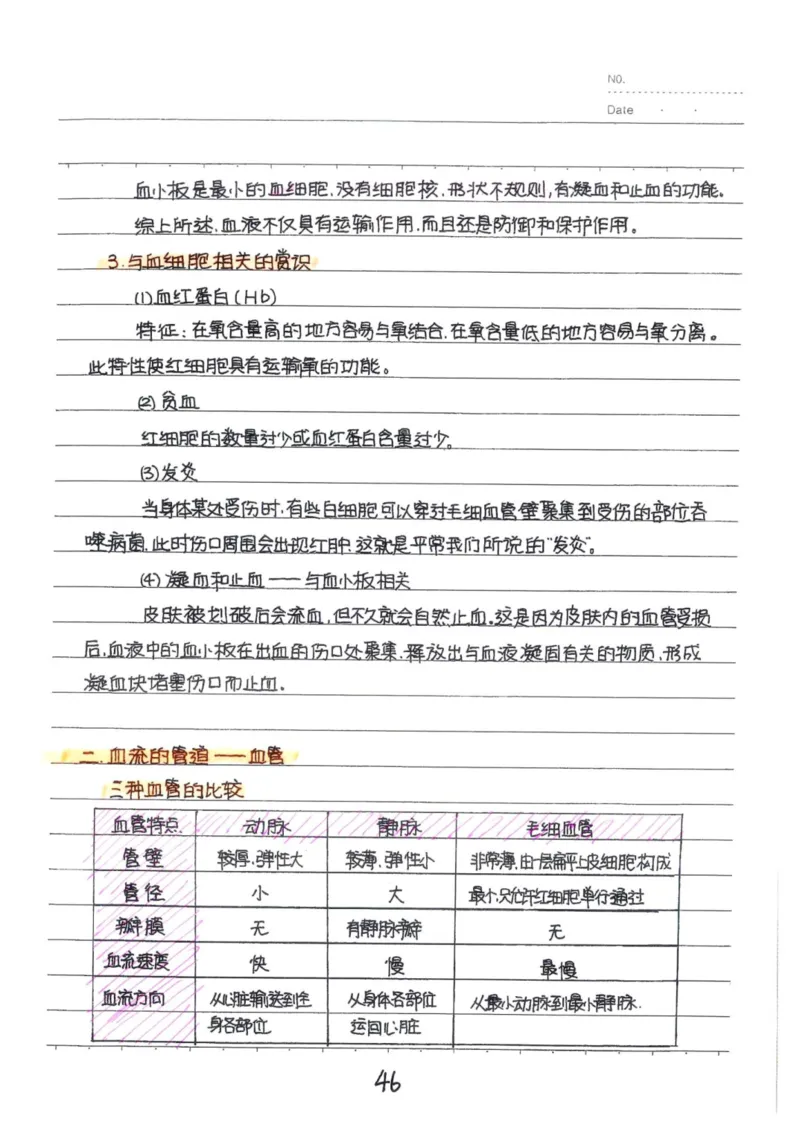 NO.
Date
血小板是最小的血细胞,没有细胞核,形状不规则,有凝血和止血的功能。
综上所述,血液不仅具有运输作用,而且还是防御和保护作用。
3.与血细胞相关的常识
(1)血红蛋白(Hb)
特征:在氧含量高的地方容易与氧结合,在氧含量低的地方容易与氧分离。
此特性使红细胞具有运输氧的功能。
(2)贫血
红细胞的数量过少或血红蛋白含量过少。
(3)发炎
当身体某处受伤时,有些白细胞可以穿过毛细血管壁聚集到受伤的部位吞
噬病菌,此时伤口周围会出现红肿,这就是平常我们所说的"发炎"。
(4)凝血和止血——与血小板相关
皮肤被划破后会流血,但不久就会自然止血。这是因为皮肤内的血管受损
后,血液中的血小板在出血的伤口处聚集,释放出与血液凝固有关的物质,形成
凝血块堵塞伤口而止血。
二.血流的管道——血管
三种血管的比较
血管特点 动脉 静脉 毛细血管
管壁 较厚,弹性大 较薄,弹性小 非常薄,由一层扁平上皮细胞构成
管径 小 大 最小,只允许红细胞单行通过
瓣膜 无 有静脉瓣 无
血流速度 快 慢 最慢
血流方向 从心脏输送到全 从身体各部位 从最小动脉到最小静脉.
身各部位 运回心脏
46